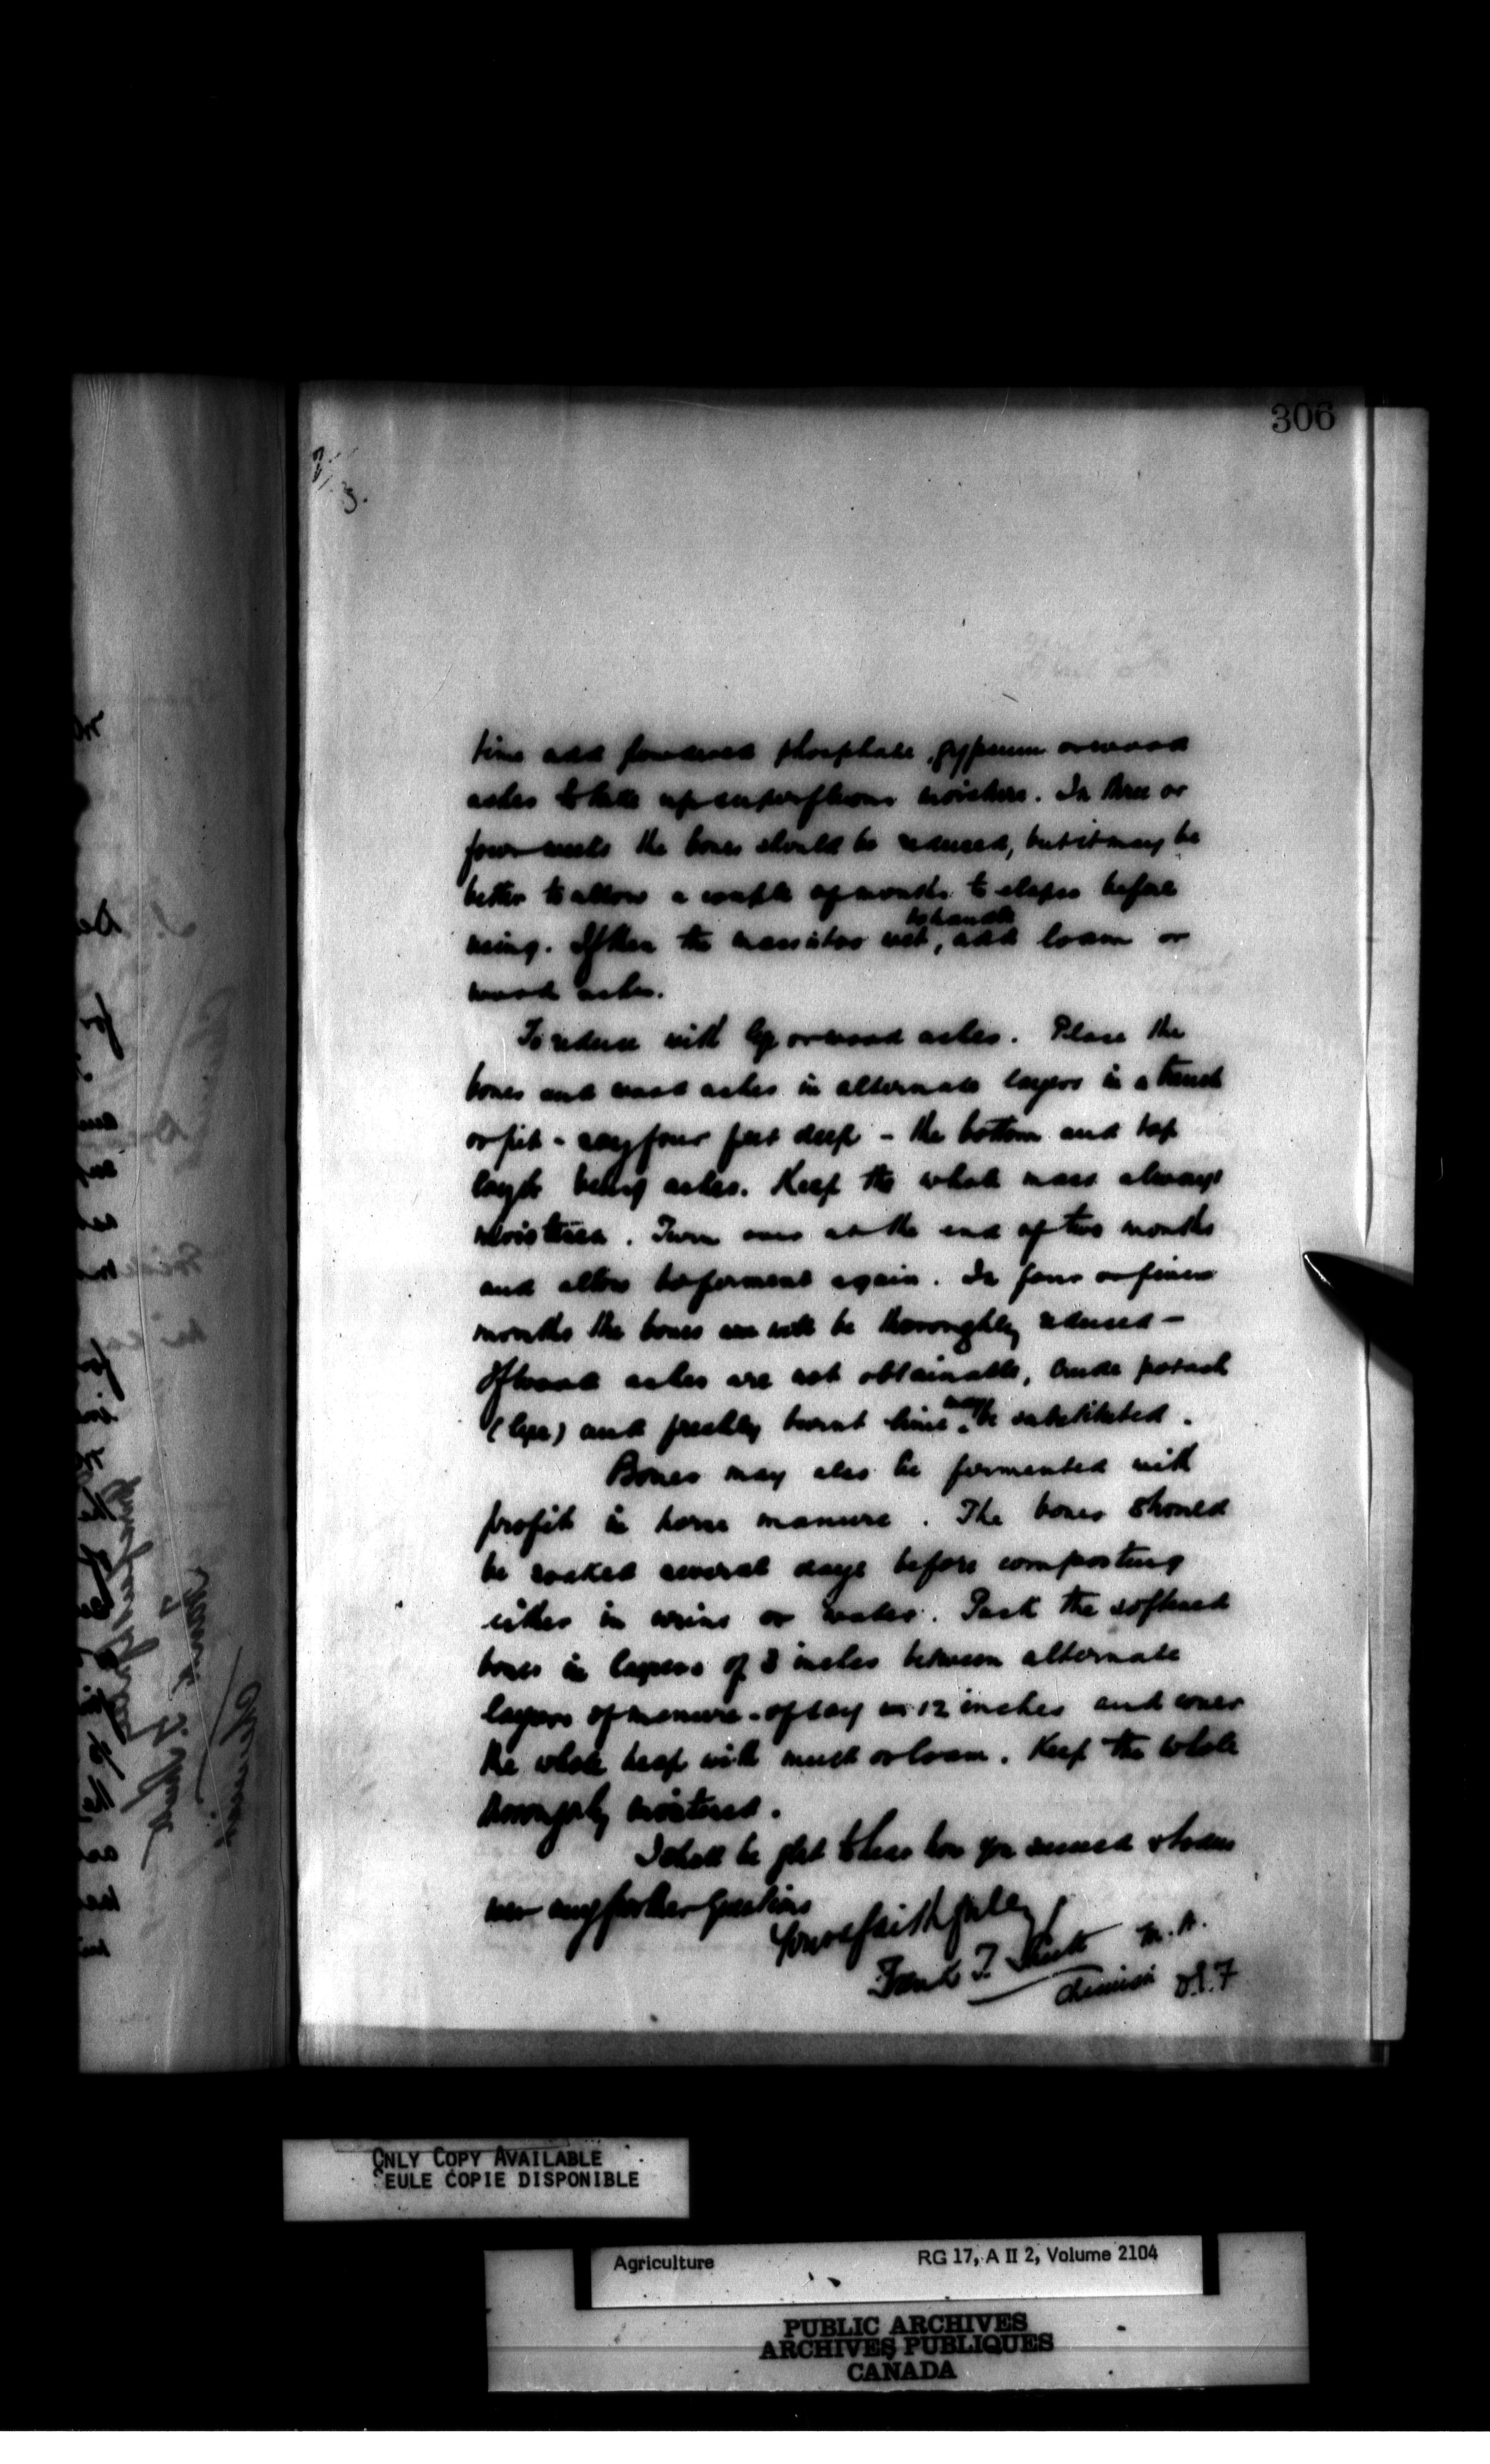 306
3.
time add powdered phosphate, gypsum or wood
ashes to take up superfluous moisture. In three or
four weeks the bones should be reduced, but it may be
better to allow a couple of months to elapse before
using. If then the mass is too wet, to handle add loam or
wood ashes.
To reduce with lye or wood ashes. Place the
bones and wood ashes in alternate layers in a trench
or pit - say four feet deep - the bottom and top
layer being ashes. Keep the whole mass always
moistened. Turn over at the end of two months
and allow to ferment again. In four or five
months the bones will be thoroughly reduced -
If wood ashes are not obtainable, crude potash
(lye) and freshly burnt lime may be substituted.
Bones may also be fermented with
profit in horse manure. The bones should
be soaked several days before composting
either in urine or water. Pack the softened
bones in layers of 3 inches between alternate
layers of manure - of say 12 inches and cover
the whole heap with muck or loam. Keep the whole
thoroughly moistened.
I shall be glad to hear how you succeed
any further questions
Yours faithfully
Frank T. Shutt M.A.
Chemist D.E.F
ONLY COPY AVAILABLE
EULE COPIE DISPONIBLE
Agriculture RG 17, A II 2, Volume 2104
PUBLIC ARCHIVES
ARCHIVES PUBLIQUES
CANADA